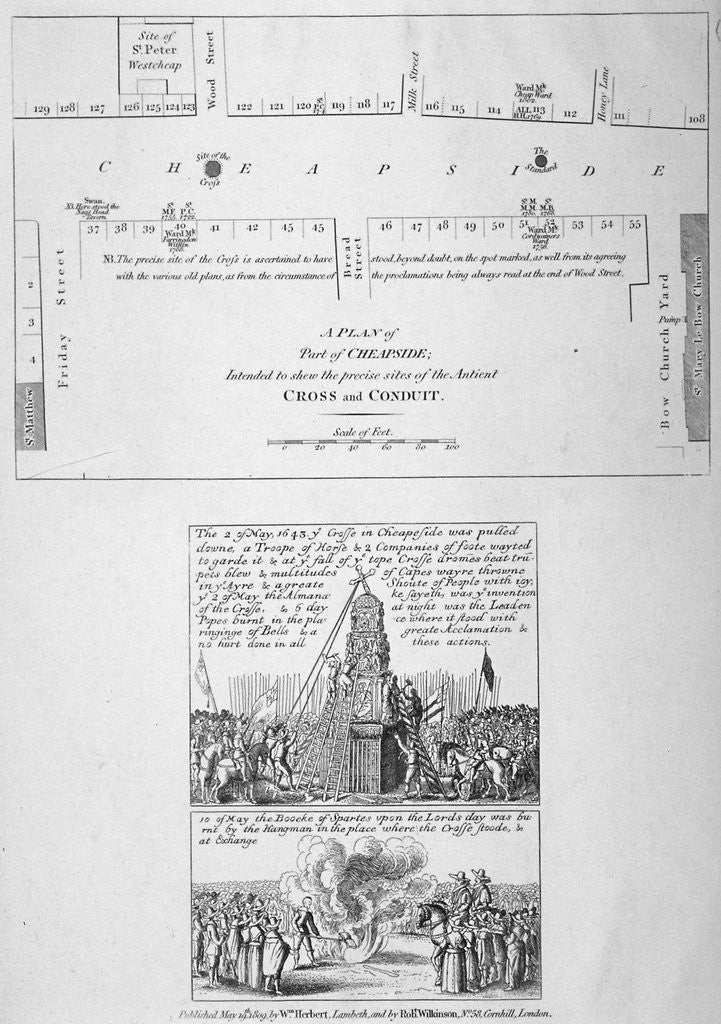 Site of
St. Peter
Westcheap
Wood Street
Milk Street
Honey Lane
129 128 127 126 125 124 123
122 121 120 119 118 117
116 115 114 113 112
111 108
Ward Mk.
Cheap Ward
ALL
CHEAPSIDE
Site of the
Cross
The
Standard
Swan.
NB. Here stood the
Nags Head
Tavern
St. St.
M.F. P.C.
St. M. St.
M.M. M.B.
37 38 39 40 41 42 43 45 45
46 47 48 49 50 51 52 53 54 55
Ward Mk.
Farringdon
Within
Ward Mk.
Cordwainers
Ward
2
3
4
St. Matthew
Friday Street
Bread Street
Bow Church Yard
Pump
St. Mary Le Bow Church
NB. The precise site of the Cross is ascertained to have stood, beyond doubt, on the spot marked, as well from its agreeing
with the various old plans, as from the circumstance of the proclamations being always read at the end of Wood Street.
A PLAN of
Part of CHEAPSIDE;
Intended to shew the precise sites of the Antient
CROSS and CONDUIT.
Scale of Feet.
0 20 40 60 80 100
The 2 of May, 1643. yͤ Crosse in Cheapeside was pulled
downe, a Troope of Horse & 2 Companies of foote wayted
to garde it & at yͤ fall of yͤ tope Crosse dromes beat tru-
pets blew & multitudes of Capes wayre throwne
in yͤ Ayre & a greate Shoute of People with ioy,
yͤ 2 of May the Almana ke sayeth, was yͤ invention
of the Crosse, & 6 day at night was the Leaden
Popes burnt in the pla ce where it stood with
ringinge of Bells & a greate Acclamation &
no hurt done in all these actions.
10 of May the Boocke of Spartes upon the Lords day was bu
rnt by the Hangman in the place where the Crosse stoode, &
at Exchange
Published May 19th. 1809, by Wm. Herbert, Lambeth, and by Robt. Wilkinson, No. 58, Cornhill, London.